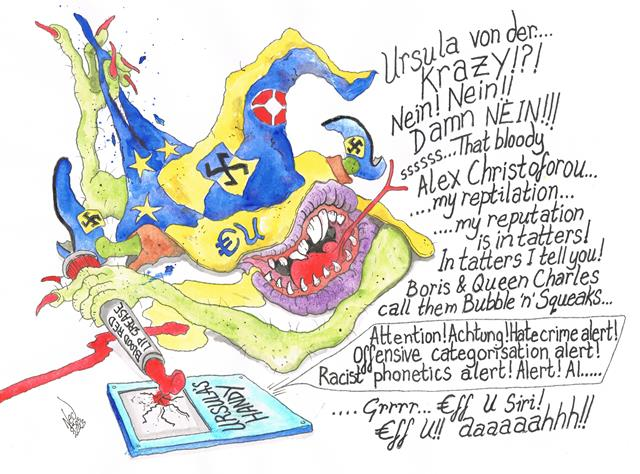 Ursula von der....
Krazy!?!
Nein! Nein!!
Damn NEIN!!!
ssssss...That bloody
Alex Christoforou...
....my reptilation...
....my reputation
is in tatters!
In tatters I tell you!
Boris & Queen Charles
call them Bubble 'n' Squeaks...
Attention! Achtung! Hate crime alert!
Offensive categorisation alert!
Racist phonetics alert! Alert! Al.....
.... Grrrr... €ff U Siri!
€ff U!! aaaaaahhh!!
BLOOD RED
LIP GREASE
URSULA'S
HANDY